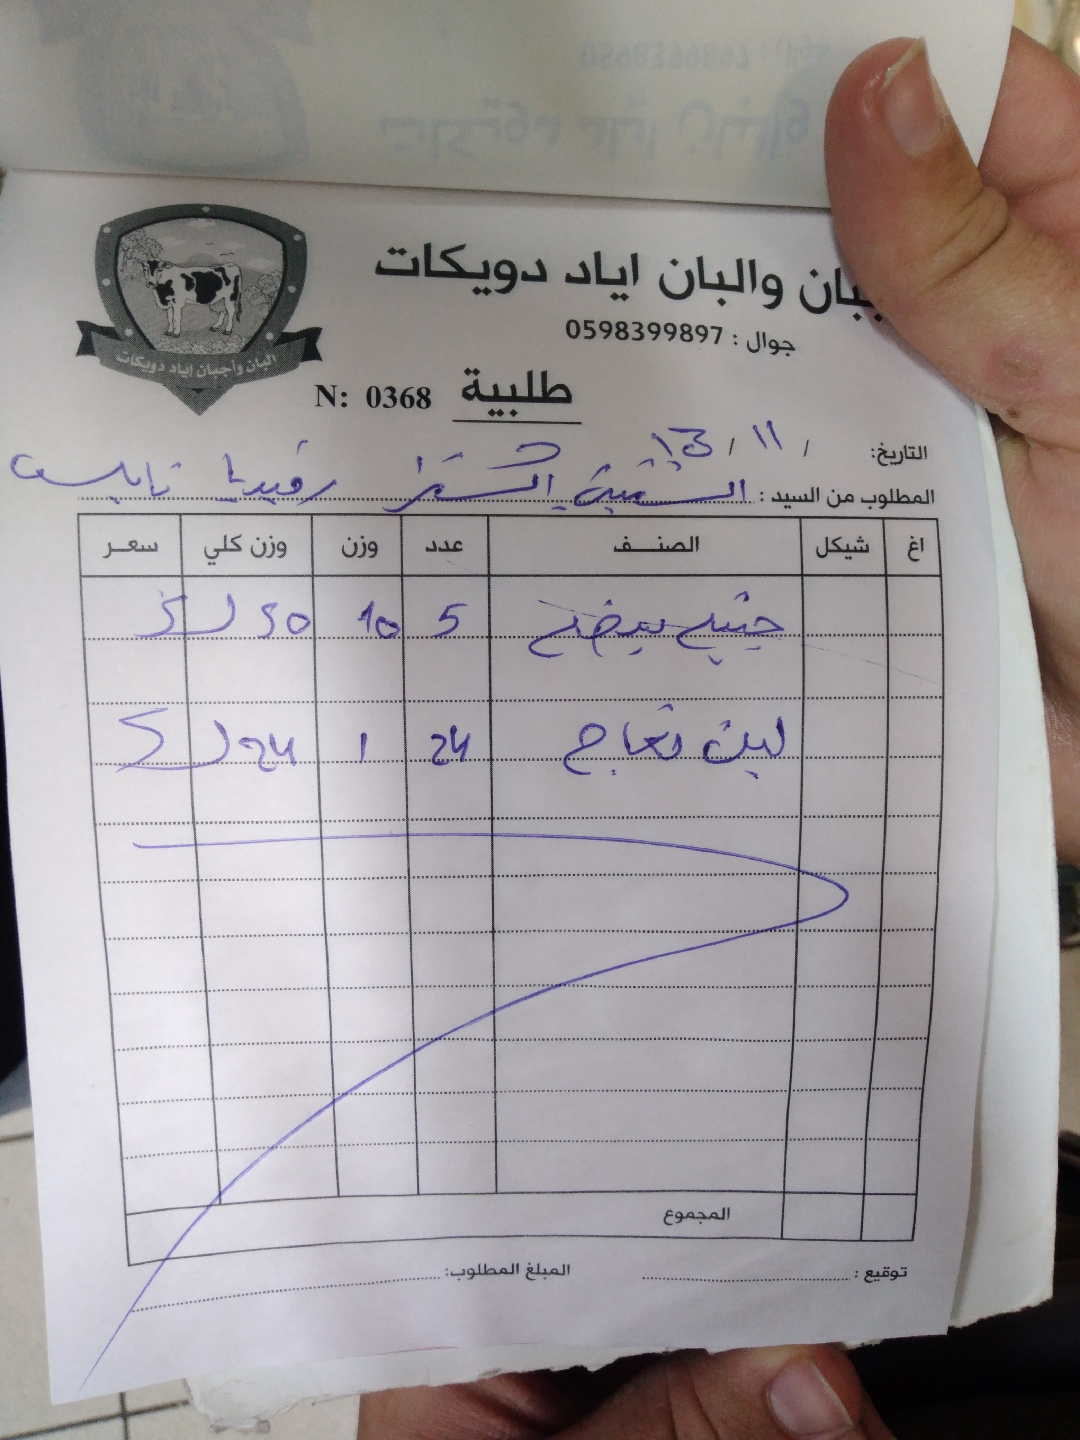 والبان اياد دويكات
جوال : 0598399897
البان وأجبان إياد دويكات
طلبية N: 0368
التاريخ: 13 / 11 /
المطلوب من السيد : رفيديا نابلس
اغ شيكل الصنف عدد وزن وزن كلي سعر
جبنة بيضاء 5 10 50
لبن نعاج 24 1 24
المجموع
توقيع : المبلغ المطلوب: